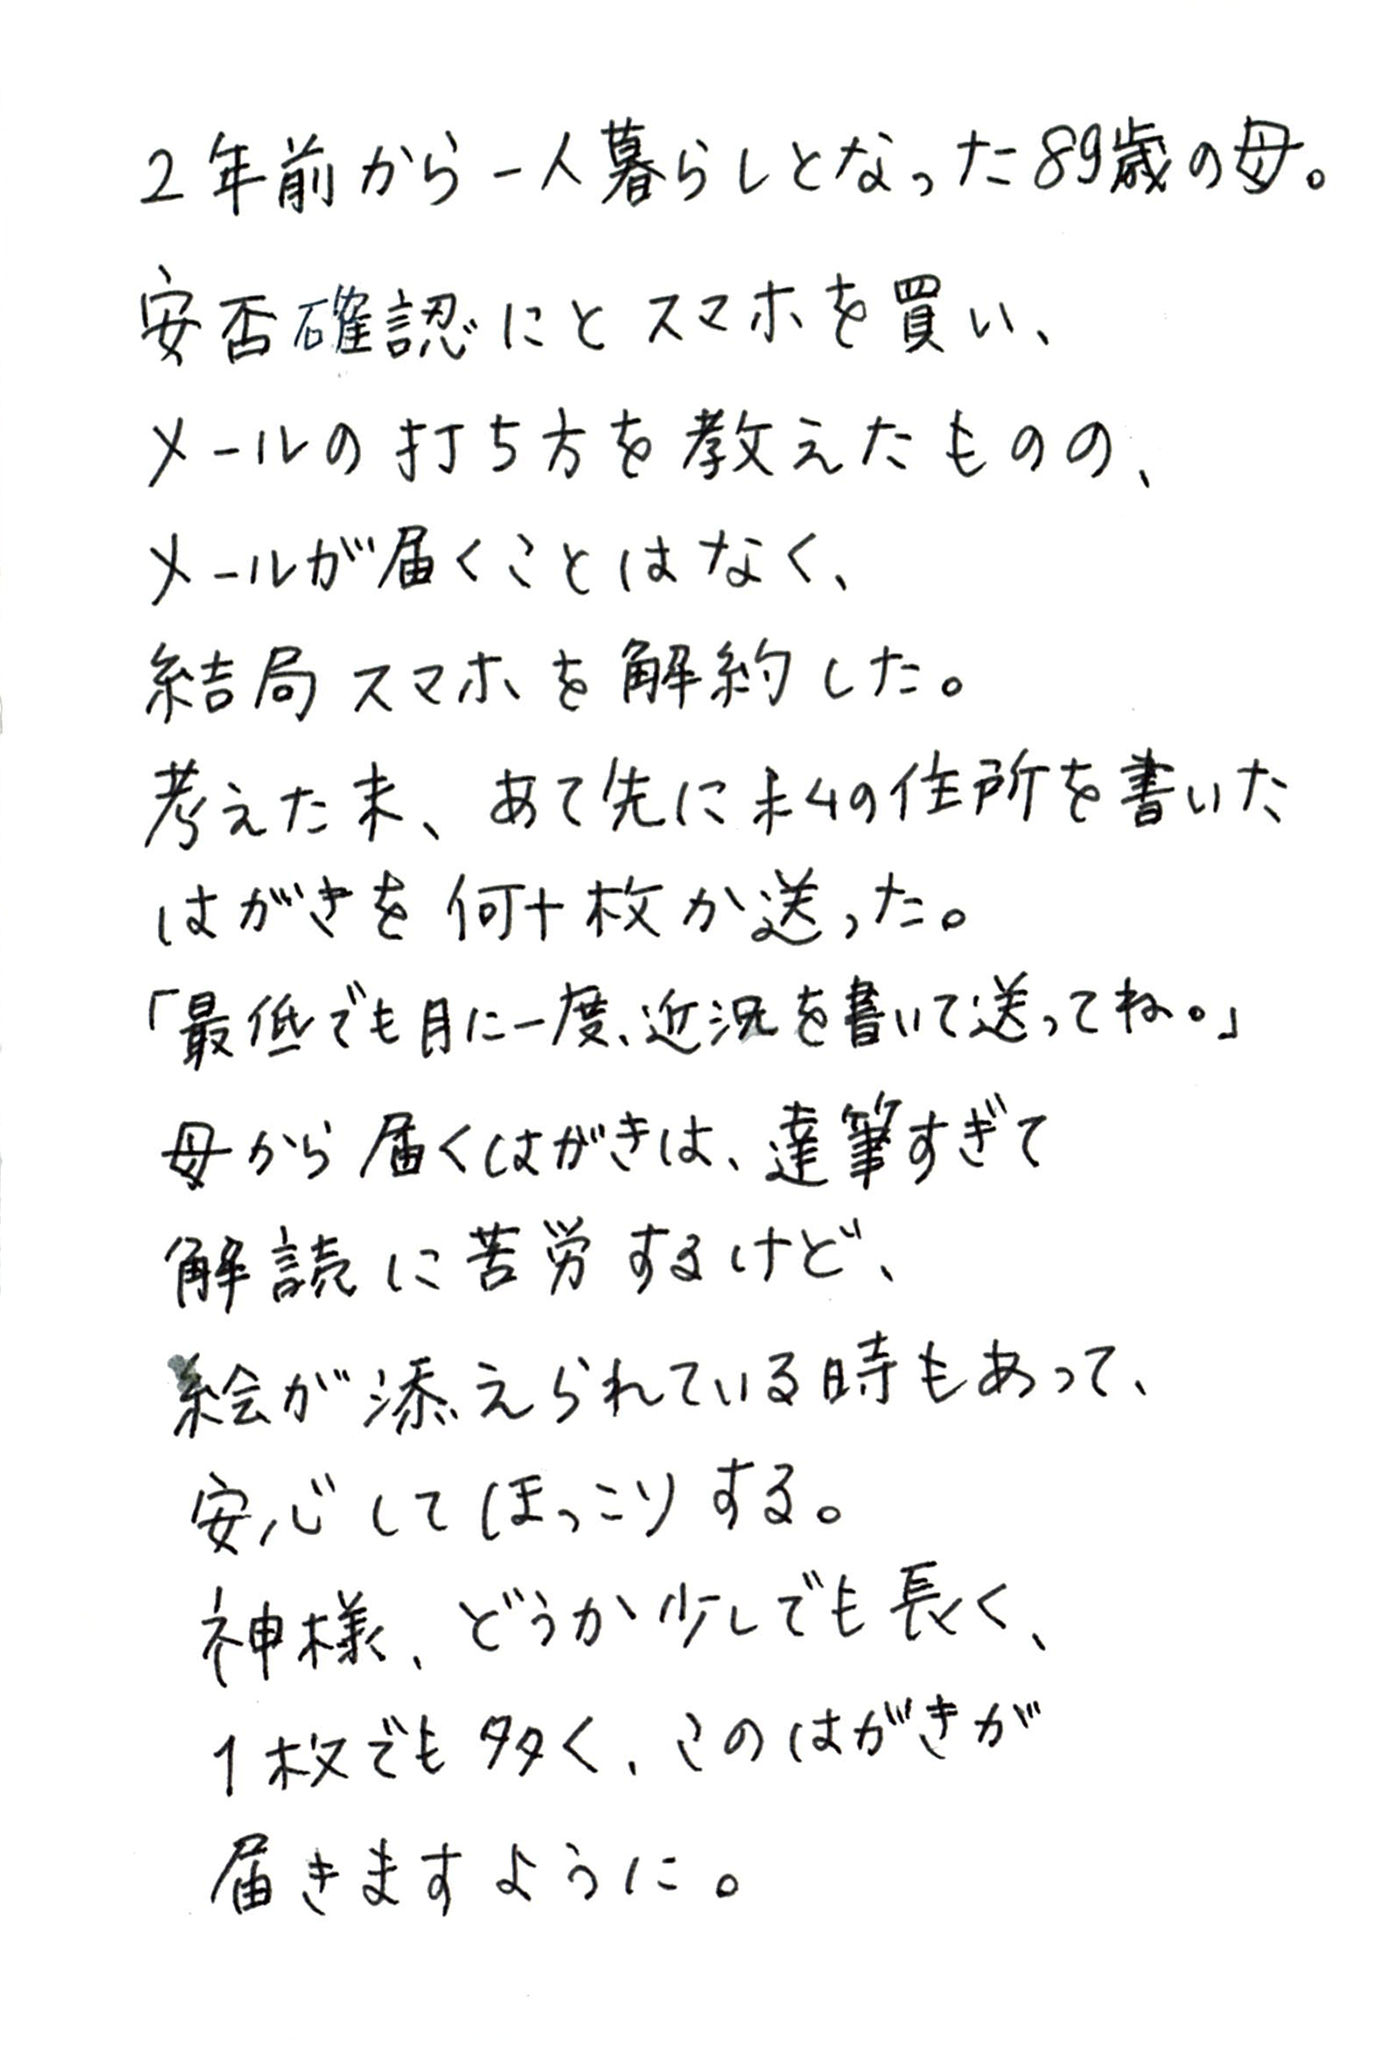 2年前から一人暮らしとなった89歳の母。
安否確認にとスマホを買い、
メールの打ち方を教えたものの、
メールが届くことはなく、
結局スマホを解約した。
考えた末、あて先に私の住所を書いた
はがきを何十枚か送った。
「最低でも月に一度、近況を書いて送ってね。」
母から届くはがきは、達筆すぎて
解読に苦労するけど、
絵が添えられている時もあって、
安心してほっこりする。
神様、どうか少しでも長く、
1枚でも多く、このはがきが
届きますように。